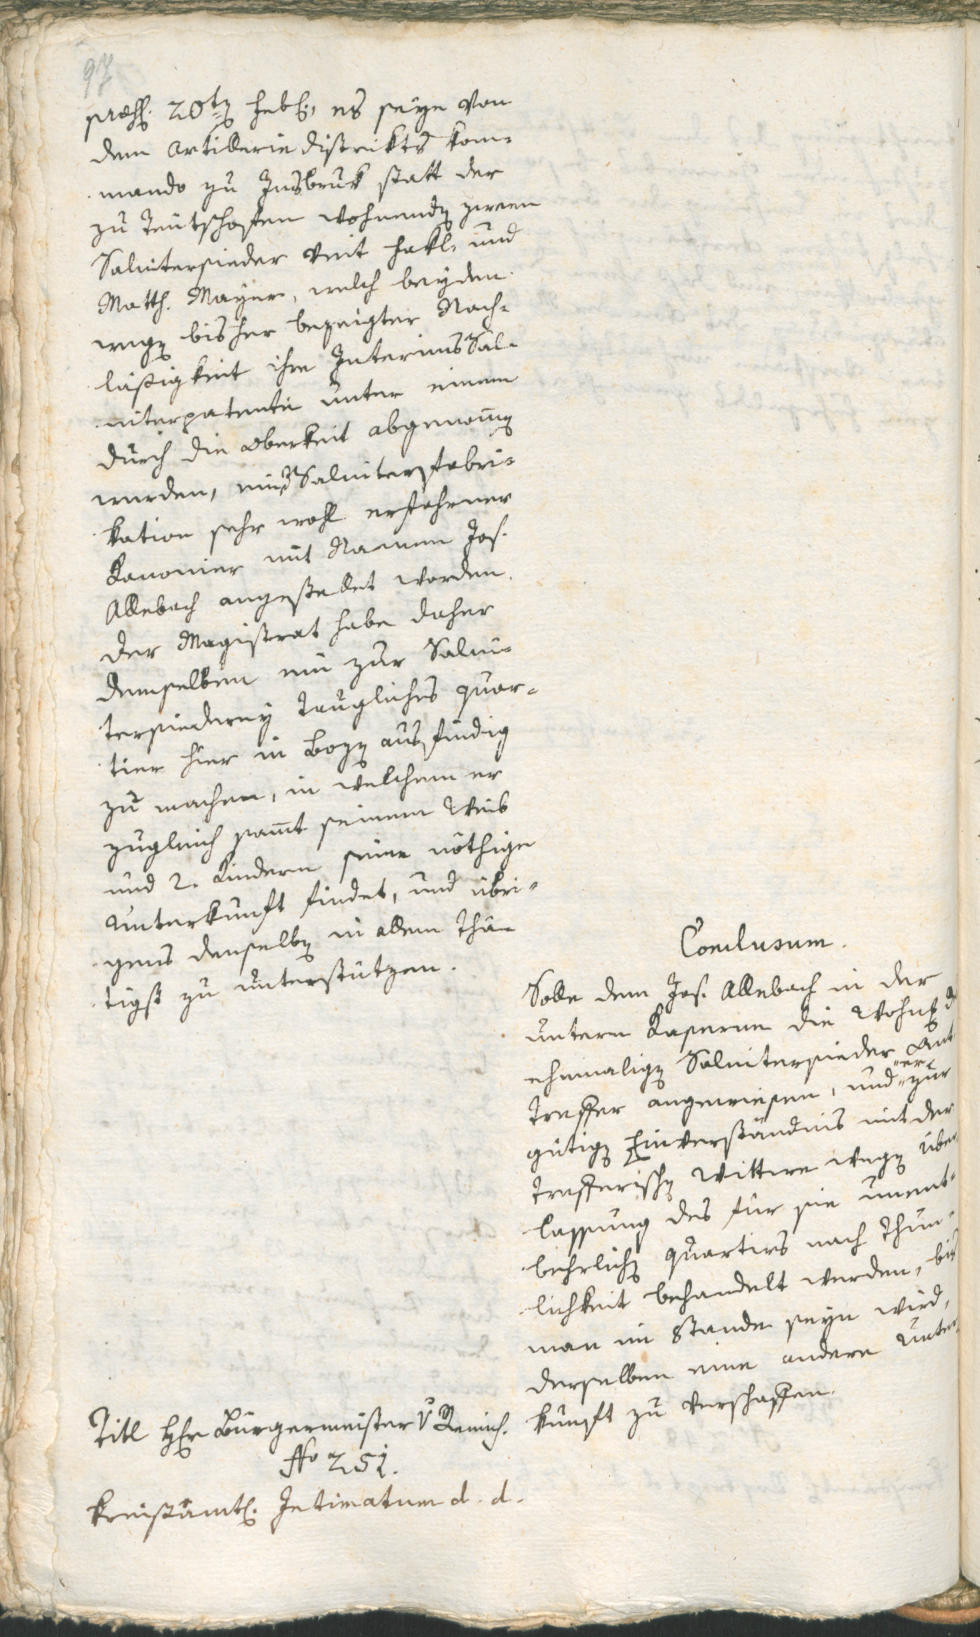 97
præs. 20ten hebh., es seye von
dem Artillerie distrikts kom-
mando zu Insbruk statt der
zu Teutschofen wohnenden zween
Salitersieder Veit Hakl, und
Matth. Mayer, welch beyden
wegen bisher bezeigter Nach-
läßigkeit ihre Interims Sal-
niterpatente unter einem
durch die Oberkeit abgenommen
wurden, ein Saliterfabri-
kation sehr wohl erfahrner
Kanonier mit Namen Jos.
Allebach angestellet worden.
der Magistrat habe daher
demselben ein zur Salni-
tersiederey taugliches quar-
tier hier in Bozen ausfindig
zu machen, in welchem er
zugleich sammt seinem Weib
und 2. Kindern seine nöthige
Unterkunft findet, und übri-
gens denselben in allem thä-
tigst zu unterstützen.
Conclusum.
Solle dem Jos. Allebach in der
untern Kaserne die Wohnung d
ehemaligen Salnitersieder Ant
Treffer angewiesen, und er zur
gütigen Einverständnis mit der
Trefferischen Wittwe wegen über
lassung des für sie unent-
behrlichen quartiers nach Thun-
lichkeit behandelt werden, bis
man im Stande seyn wird,
derselben eine andere Unter
kunft zu verschaffen.
Titl Hr Bürgermeister v Remich.
No 251.
Kreisämtl. Intimatum d. d.